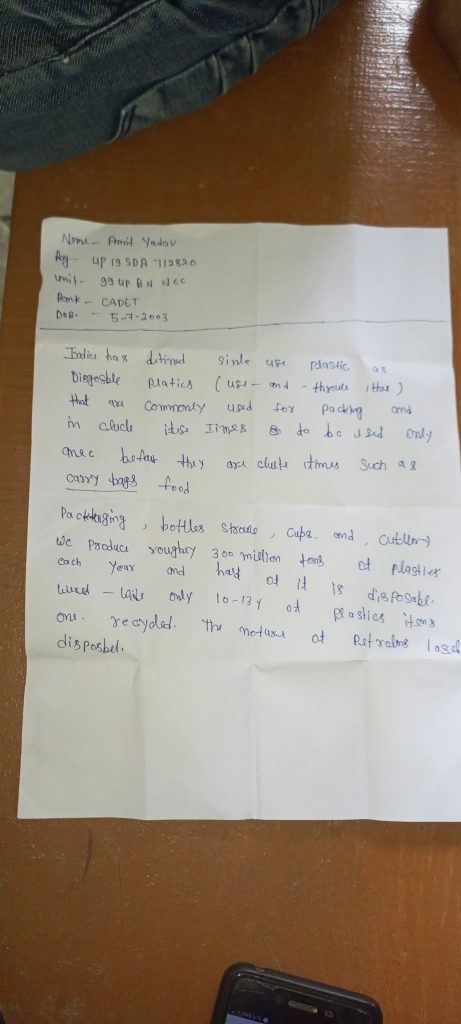 Name - Amit Yadav
Reg - UP 19 SDA 712820
Unit - 99 UP BN NCC
Rank - CADET
DOB. - 5-7-2003
India has defined sinle use plastic as
Disposble platics ( use - and - throwe )
that are commonly used for packing and
in clude itse Itmes to be used only
they are itmes such as
carry bags food
Packtaging , bottles strowe , cups. and , cutllery
We produce roughly 300 million tons of plastics
each year and half of it is disposabl.
wide only 10-13% of plastics itens
are. recycled. The nature of
disposbel.